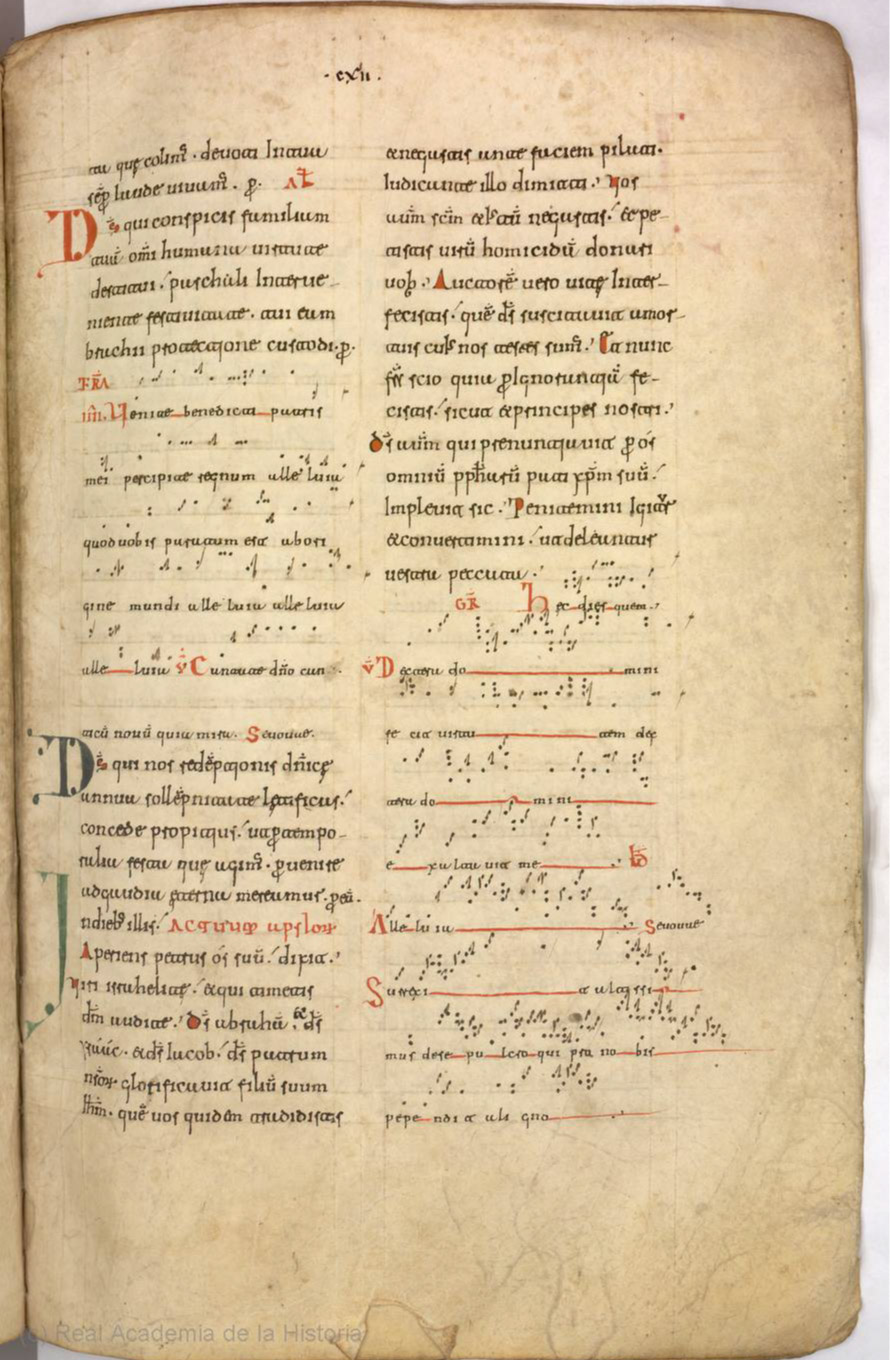 ·cxii.
tau quę colimꝰ · deuota In tua
sēp laude uiuamꝰ · ꝑ· Al̄
Dꝰs qui conspicis familiam
tuā omī humana uirtute
destitui / paschali Interue-
niente festiuitate · tui eum
brachii protectione custodi · ꝑ·
FRA
IIII. Uenite benedicti patris
mei percipite regnum alleluia
quod uobis paratum est ab ori
gine mundi alleluia alleluia
alleluia V̄ Cantate dn̄o can
ticū nouū quia mira. Seuouae.
Dꝰs qui nos redēptionis dn̄icę
annua sollēpnitate lętificas /
concede propitius / ut ꝑ tempo-
ralia festa quę agimꝰ · ꝑuenire
ad gaudia ęterna mereamus · ꝑ eū.
In diebꝰ illis / Actuum apslor̄
Aperiens petrus os suū / dixit ·
Uiri israhelitę / et qui timetis
dm̄ audite · Ds̄ abrahā · et ds̄
ysaac · et ds̄ Iacob · ds̄ patrum
nr̄or̄ glorificauit filiū suum
Ihm̄ · quē uos quidem tradidistis
et negastis ante faciem pilati ·
Iudicante illo dimitti · Uos
autem scm̄ et Iustū negastis / et pe-
tistis uirū homicidā donari
uob̄ · Auctorē uero uitę Inter-
fecistis / quē ds̄ suscitauit a mor-
tuis cuiꝰ nos testes sumꝰ · Et nunc
fr̄s scio quia ꝑ Ignorantiā fe-
cistis / sicut et principes nostri ·
Ds̄ autem qui prenuntiauit ꝑ os
omniū pphetarū pati xp̄m suū /
Impleuit sic · Penitemini Igitur
et conuertamini / ut deleantur
uestra peccata ·
GR̄ Hec dies quem ·
V̄ Dextera domini
fecit uirtutem dex
tera domini
exultauit me
Alleluia Seuouae
Surrexit altissi
mus de sepulcro qui pro nobis
pependit in ligno
Real Academia de la Historia